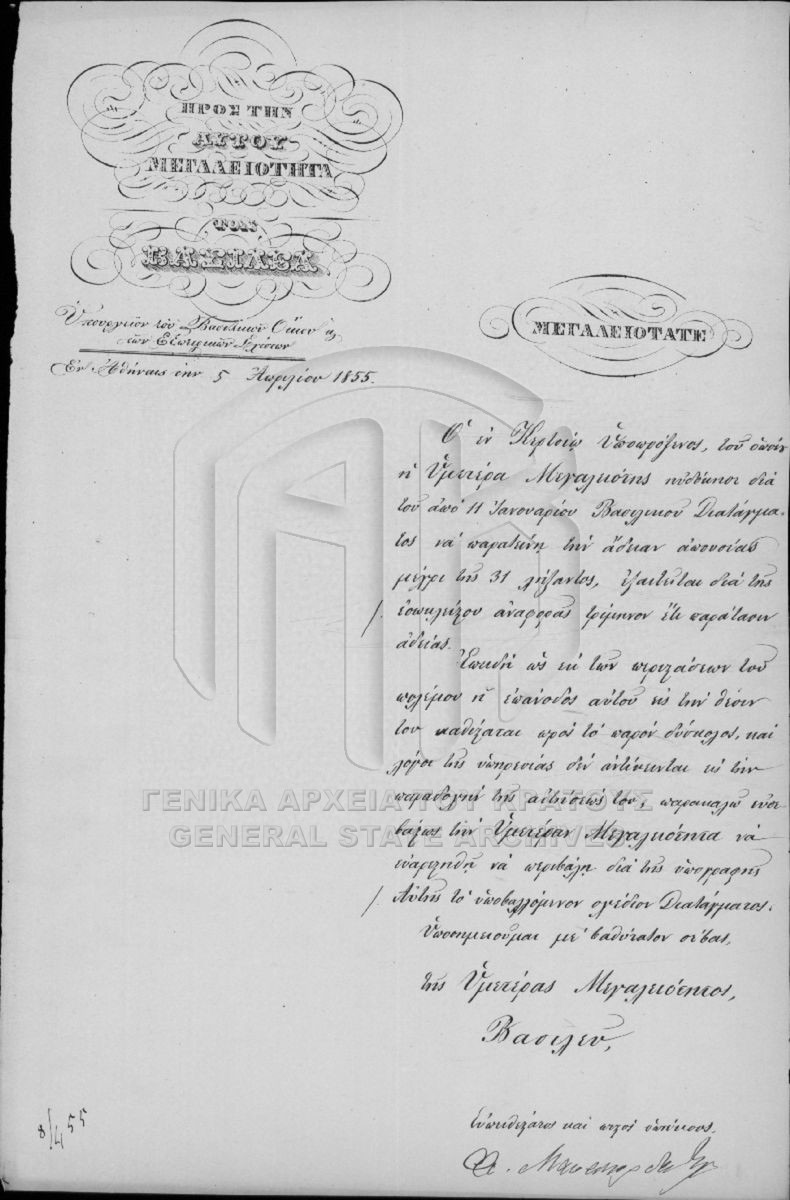 ΠΡΟΣ ΤΗΝ
ΑΥΤΟΥ
ΜΕΓΑΛΕΙΟΤΗΤΑ
ΤΟΝ
ΒΑΣΙΛΕΑ
Ὑπουργεῖον τοῦ Βασιλικοῦ Οἴκου κ
τῶν Ἐξωτερικῶν Σχέσεων
Ἐν Ἀθήναις τὴν 5 Ἀπριλίου 1855.
ΜΕΓΑΛΕΙΟΤΑΤΕ
Ὁ ἐν Κερτσίῳ Ὑποπρόξενος, τοῦ ὁποίου
ἡ Ὑμετέρα Μεγαλειότης ηὐδόκησε διὰ
τοῦ ἀπὸ 11 Ἰανουαρίου Βασιλικοῦ Διατάγμα-
τος νὰ παρατείνῃ τὴν ἄδειαν ἀπουσίας
μέχρι τῆς 31 λήξαντος, ἐξαιτεῖται διὰ τῆς
ἐσωκλείστου ἀναφορᾶς τρίμηνον ἔτι παράτασιν
ἀδείας.
Ἐπειδὴ ὡς ἐκ τῶν περιστάσεων τοῦ
πολέμου ἡ ἐπάνοδος αὐτοῦ εἰς τὴν θέσιν
του καθίσταται πρὸς τὸ παρὸν δύσκολος, καὶ
λόγοι τῆς ὑπηρεσίας δὲν ἀντίκεινται εἰς τὴν
παραδοχὴν τῆς αἰτήσεώς του, παρακαλῶ εὐσε-
βάστως τὴν Ὑμετέραν Μεγαλειότητα νὰ
εὐαρεστηθῇ νὰ περιβάλῃ διὰ τῆς ὑπογραφῆς
Αὑτῆς τὸ ὑποβαλλόμενον σχέδιον Διατάγματος.
Ὑποσημειοῦμαι μὲ βαθύτατον σέβας,
τῆς Ὑμετέρας Μεγαλειότητος,
Βασιλεῦ,
Εὐπειθέστατος καὶ πιστὸς ὑπήκοος,
8/4 55
ΓΕΝΙΚΑ ΑΡΧΕΙΑ ΤΟΥ ΚΡΑΤΟΥΣ
GENERAL STATE ARCHIVES